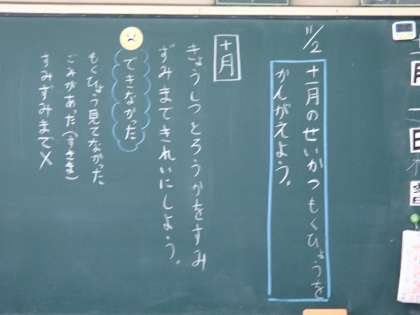 11/2
十一月のせいかつもくひょうを
かんがえよう。
十月
きょうしつとろうかをすみ
ずみまできれいにしよう。
できなかった
もくひょう見てなかった。
ごみがあった(すききま)
すみずみまで×